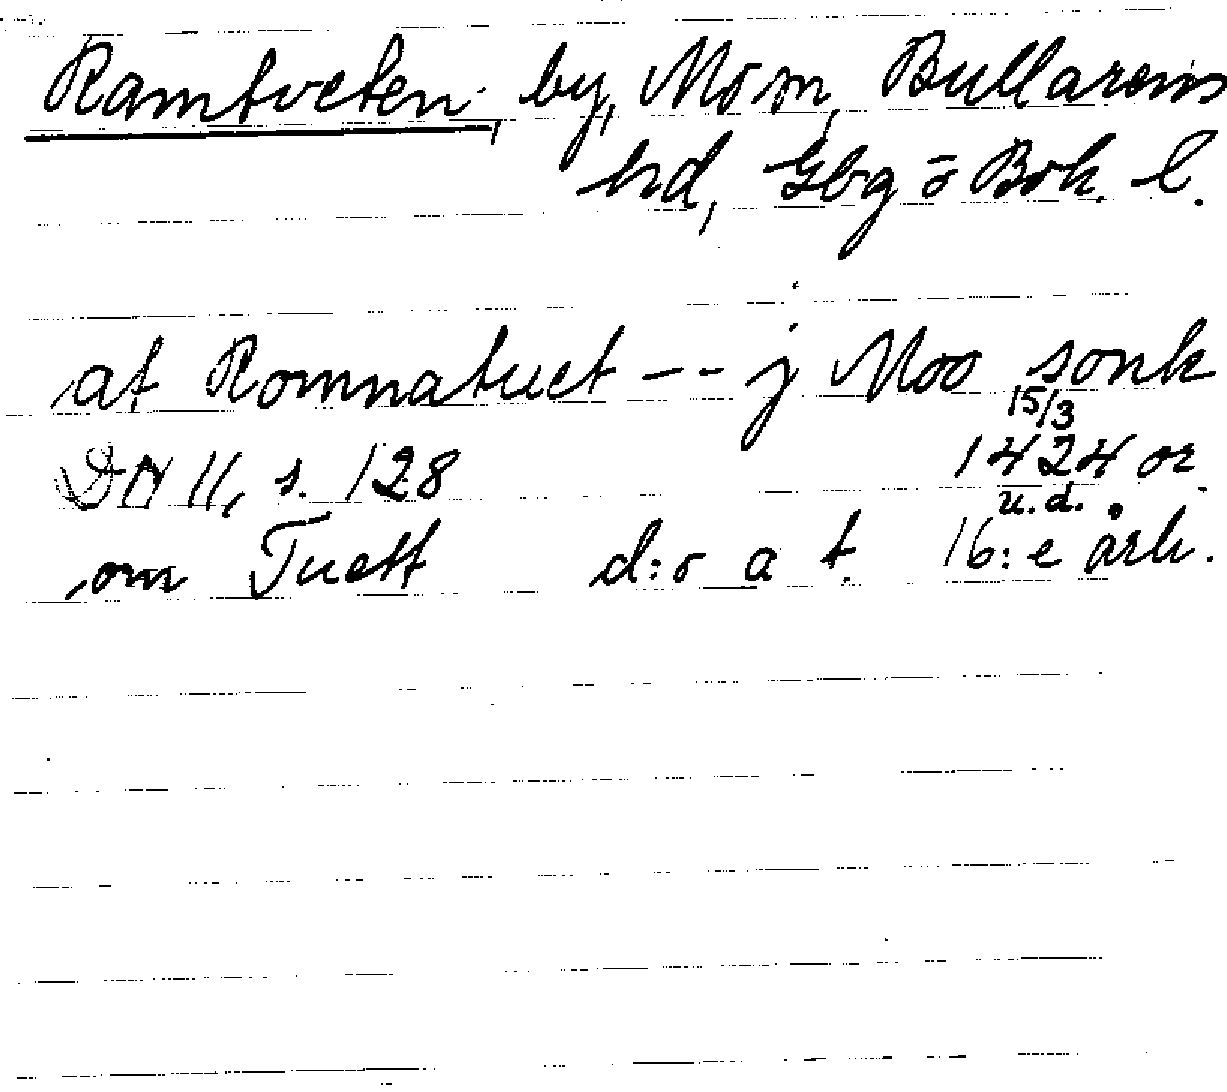 Ramtveten, by, Mo sn, Bullarens
hd, Gbg o Boh. l.
at Romnatuet -- j Moo sonk
15/3
DN II, s. 128 1424 or.
u.d.
om Tuett d:o a t. 16:e årh.